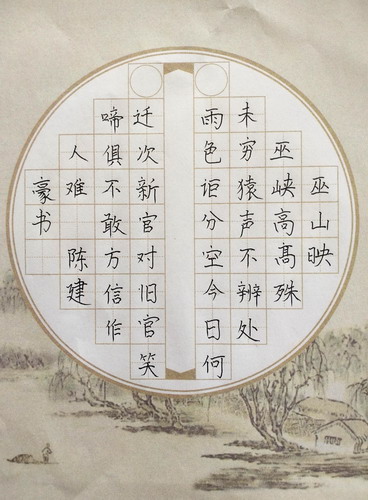 巫山映
巫峡高髙殊
未穷猿声不辨处
雨色讵分空今日何
迁次新官对旧官笑
啼俱不敢方信作
人难 陈建
豪书